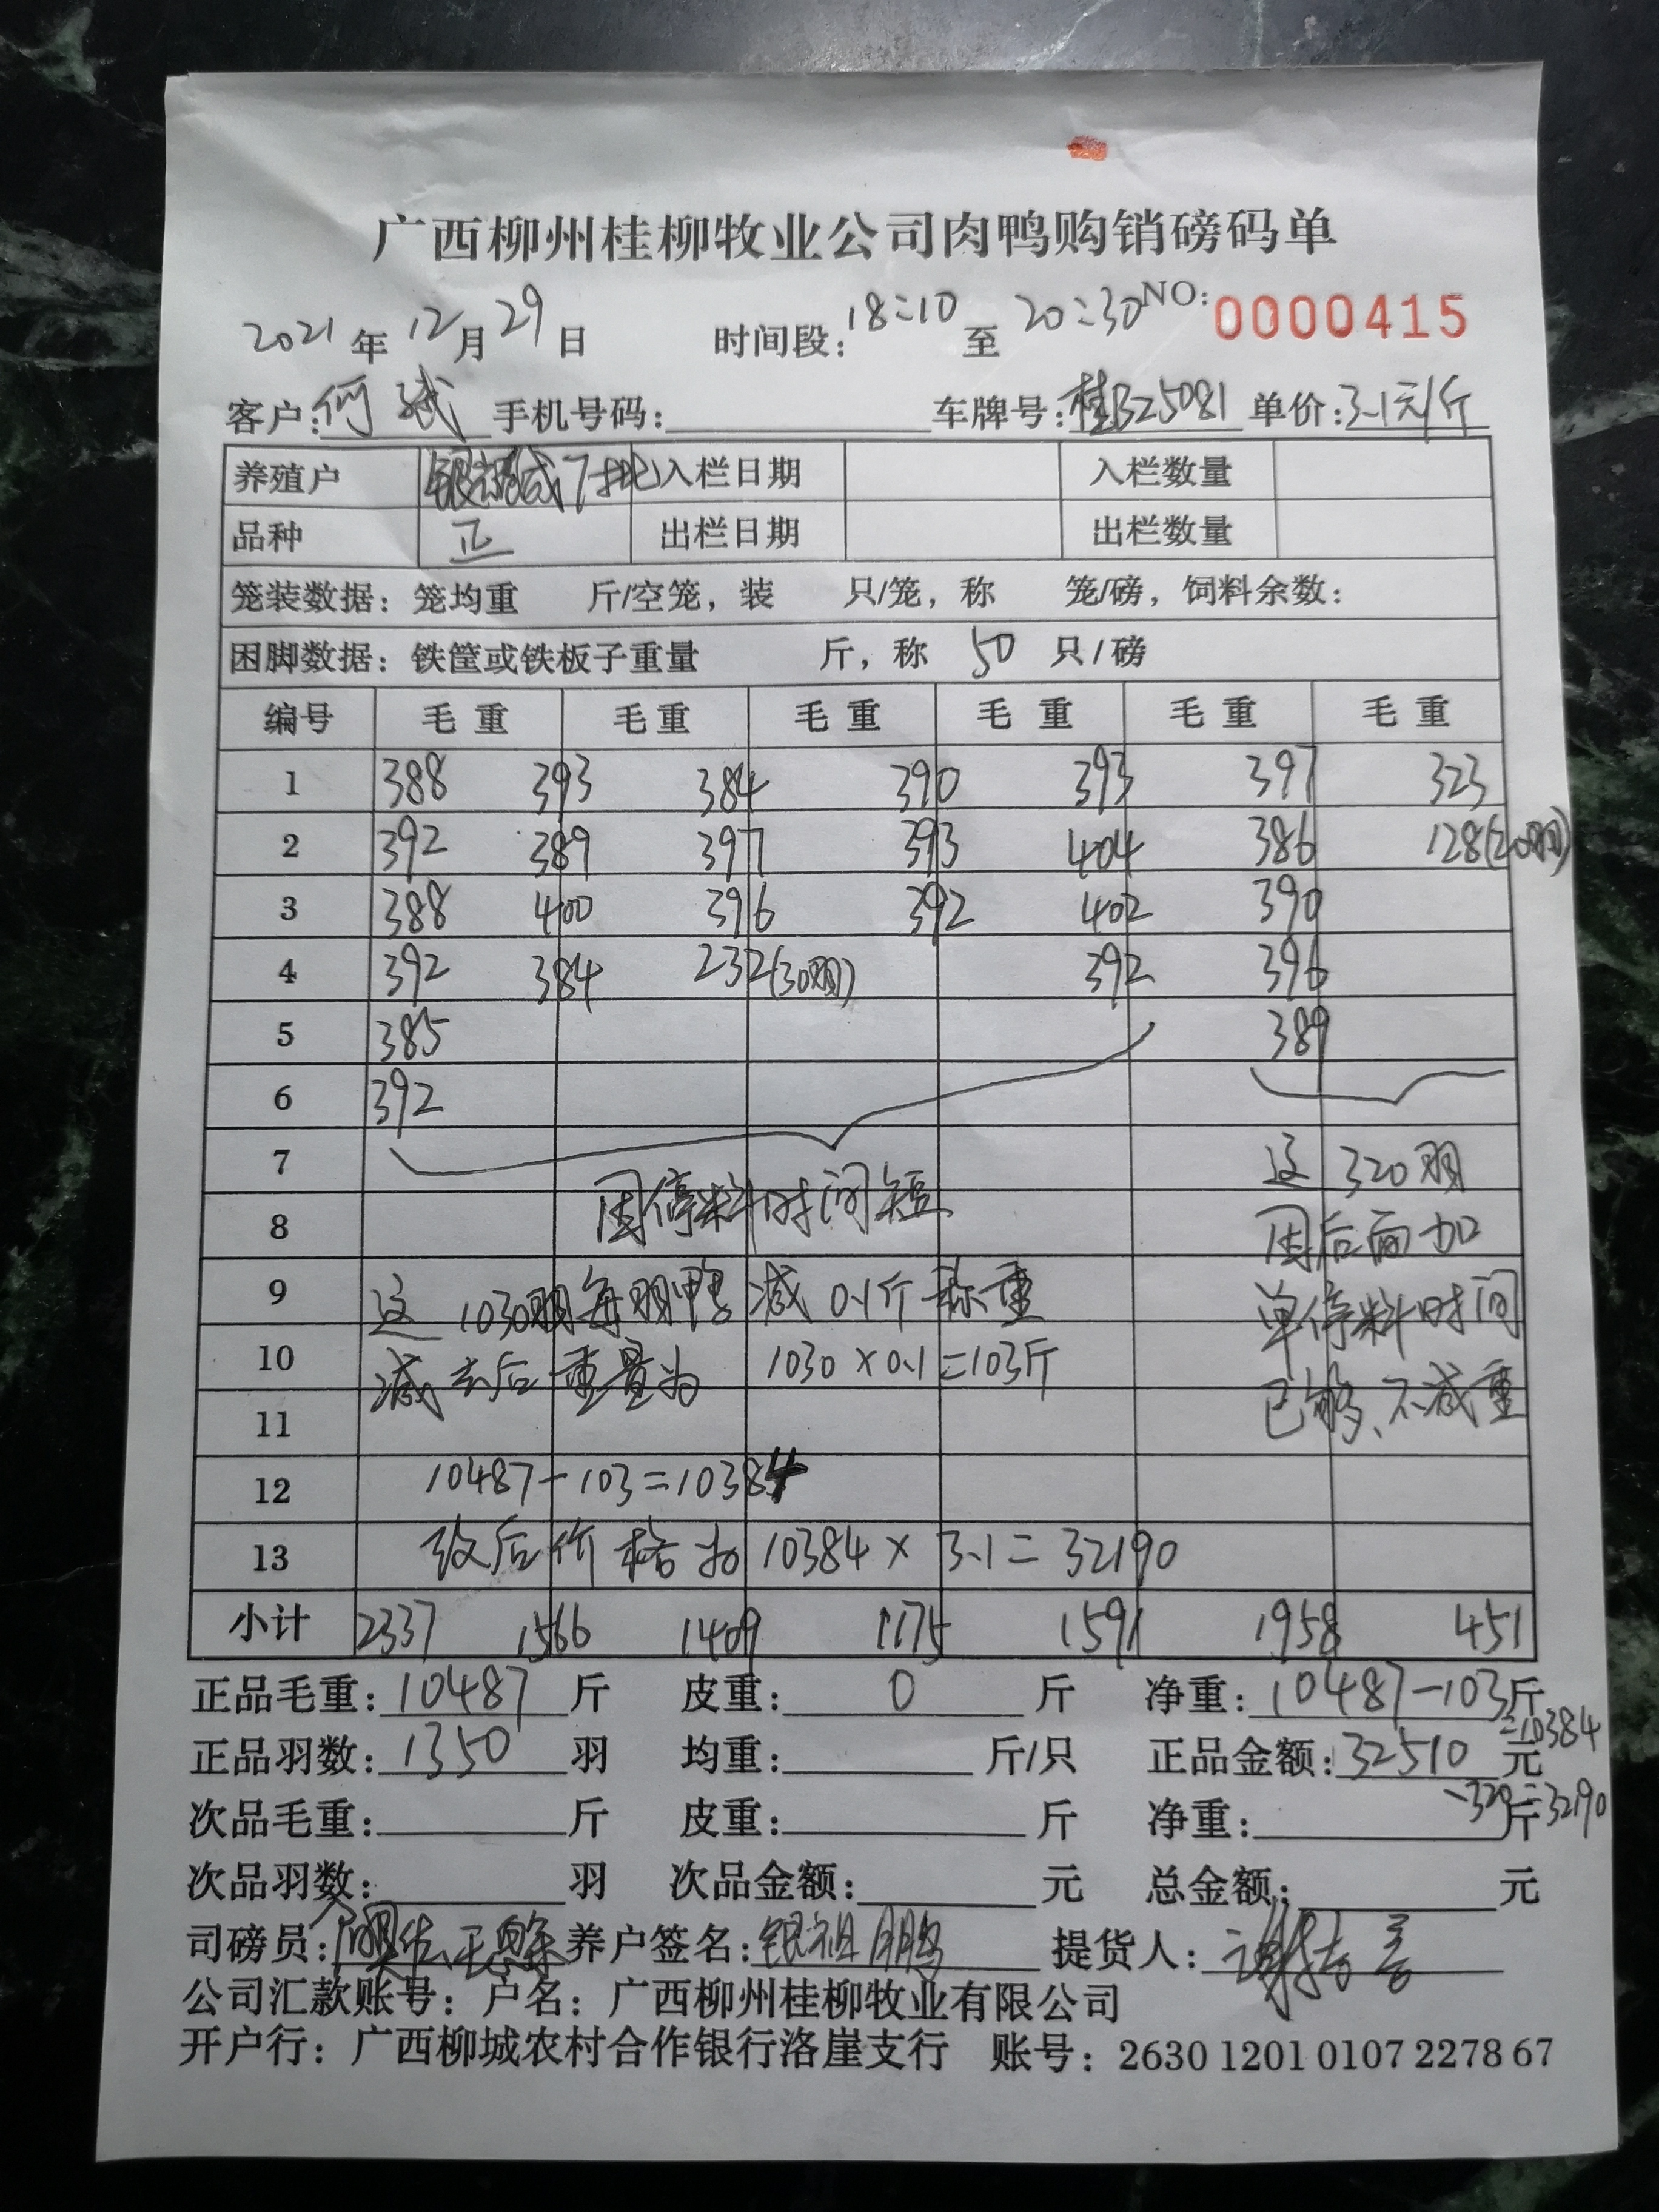 广西柳州桂柳牧业公司肉鸭购销磅码单
2021年12月29日 时间段：18:10至20:30 NO: 0000415
客户：何斌 手机号码： 车牌号：桂B25081 单价：3.1元/斤
养殖户 7批 入栏日期 入栏数量
品种 正 出栏日期 出栏数量
笼装数据：笼均重 斤/空笼，装 只/笼，称 笼/磅，饲料余数：
困脚数据：铁筐或铁板子重量 斤，称 50 只/磅
编号 毛重 毛重 毛重 毛重 毛重 毛重
1 388 393 384 390 393 397 323
2 392 389 397 393 404 386 128(20羽)
3 388 400 396 392 402 390
4 392 384 232(30羽) 392 396
5 385 389
6 392
7 这320羽
8 因停料时间短 因后面加
9 这1030羽每羽鸭减0.1斤称重 单停料时间
10 减去后重量为 1030×0.1=103斤
11 已够、不减重
12 10487-103=10384
13 改后价格为10384×3.1=32190
小计 2337 1566 1409 1175 1591 1958 451
正品毛重：10487斤 皮重：0斤 净重：10487-103斤
=10384
正品羽数：1350羽 均重： 斤/只 正品金额：32510元
-320=32190
次品毛重： 斤 皮重： 斤 净重： 斤
次品羽数： 羽 次品金额： 元 总金额： 元
司磅员： 养户签名：银祖鹏 提货人：
公司汇款账号：户名：广西柳州桂柳牧业有限公司
开户行：广西柳城农村合作银行洛崖支行 账号：2630 1201 0107 2278 67